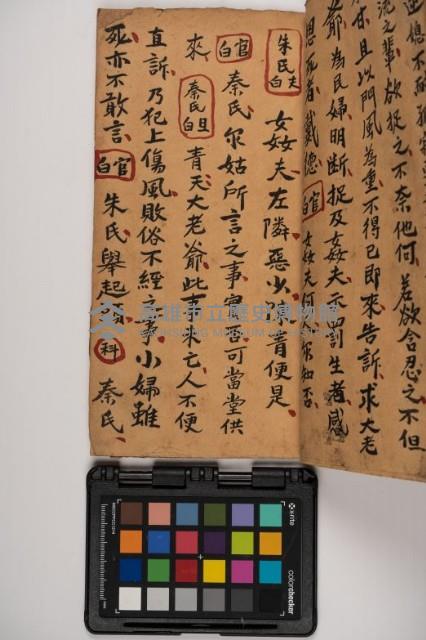 逆媳不耐孤
流之輩欲捉之不奈他何若欲含忍之不但
且以門風為重不得已即來告訴求大老
爺為民婦明斷捉及姦夫示罰生者感
恩死者戴德 官白 姦夫何你知否
朱氏夫白 姦夫左隣惡少 青便是
官白 秦氏尔姑所言之事實否可當堂供
來 秦氏旦白 青天大老爺此事未亡人不便
直訴乃犯上傷風敗俗不經之事小婦雖
死亦不敢言 官白 朱氏舉起頭 科 秦氏
高雄市立歷史博物館
KAOHSIUNG MUSEUM OF HISTORY
x-rite
colorchecker